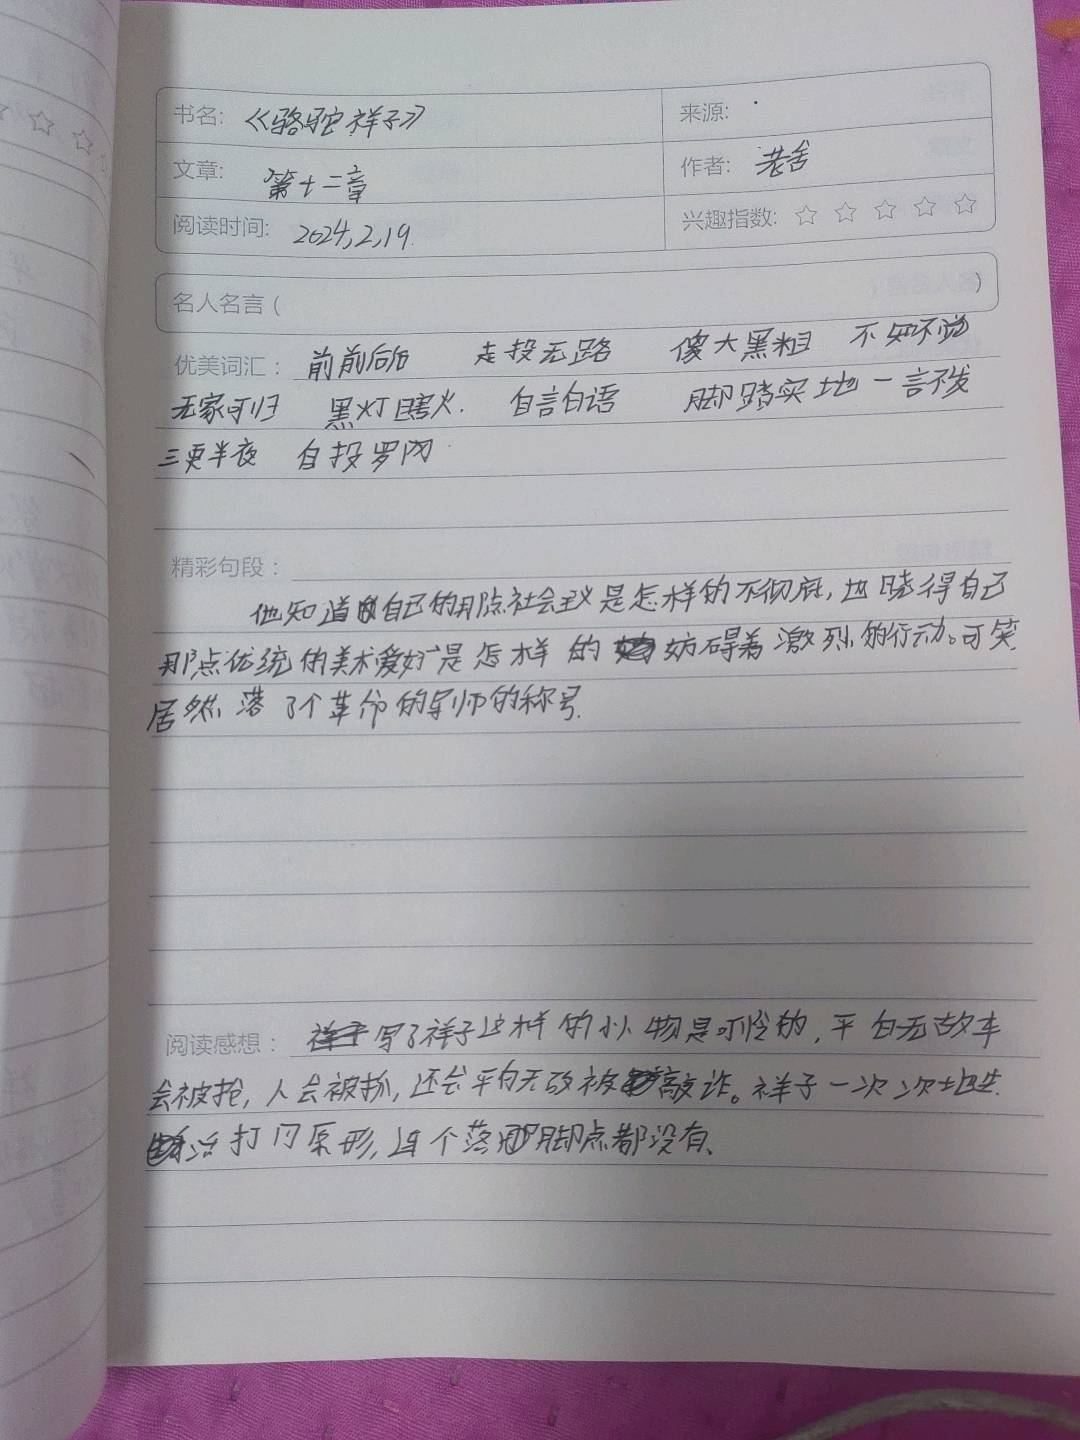 书名: 《骆驼祥子》 来源:
文章: 第十二章 作者: 老舍
阅读时间: 2024,2,19. 兴趣指数: ☆ ☆ ☆ ☆ ☆
名人名言 ( )
优美词汇: 前前后后 走投无路 傻大黑粗 不知不觉
无家可归 黑灯瞎火. 自言自语 脚踏实地 一言不发
三更半夜 自投罗网
精彩句段:
他知道自己的那点社会主义是怎样的不彻底,也晓得自己
那点传统的美术爱好是怎样的妨碍着激烈的行动。可笑
居然落了个革命的导师的称号.
阅读感想: 写了祥子这样的小人物是可怜的,平白无故车
会被抢,人会被抓,还会平白无故被敲诈。祥子一次次地生
活打回原形,连个落脚点都没有、